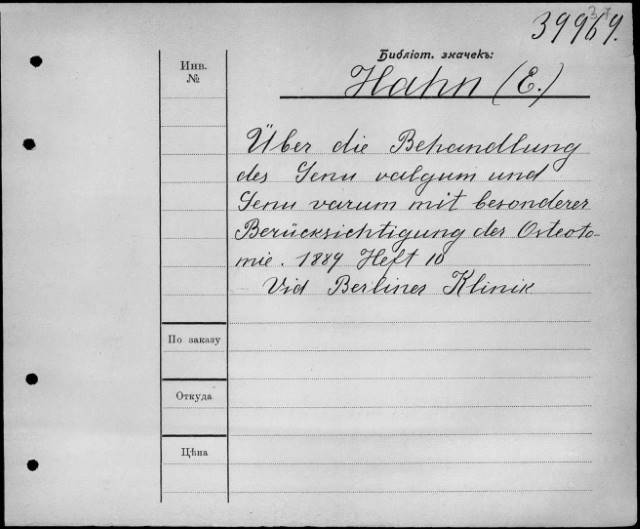 39969.
37
Библіот. значекъ:
Инв.
№
Hahn (E.)
Über die Behandlung
des Genu valgum und
Genu varum mit besonderer
Berücksichtigung der Osteoto-
mie. 1889 Heft 10
Vid Berliner Klinik
По заказу
Откуда
Цѣна